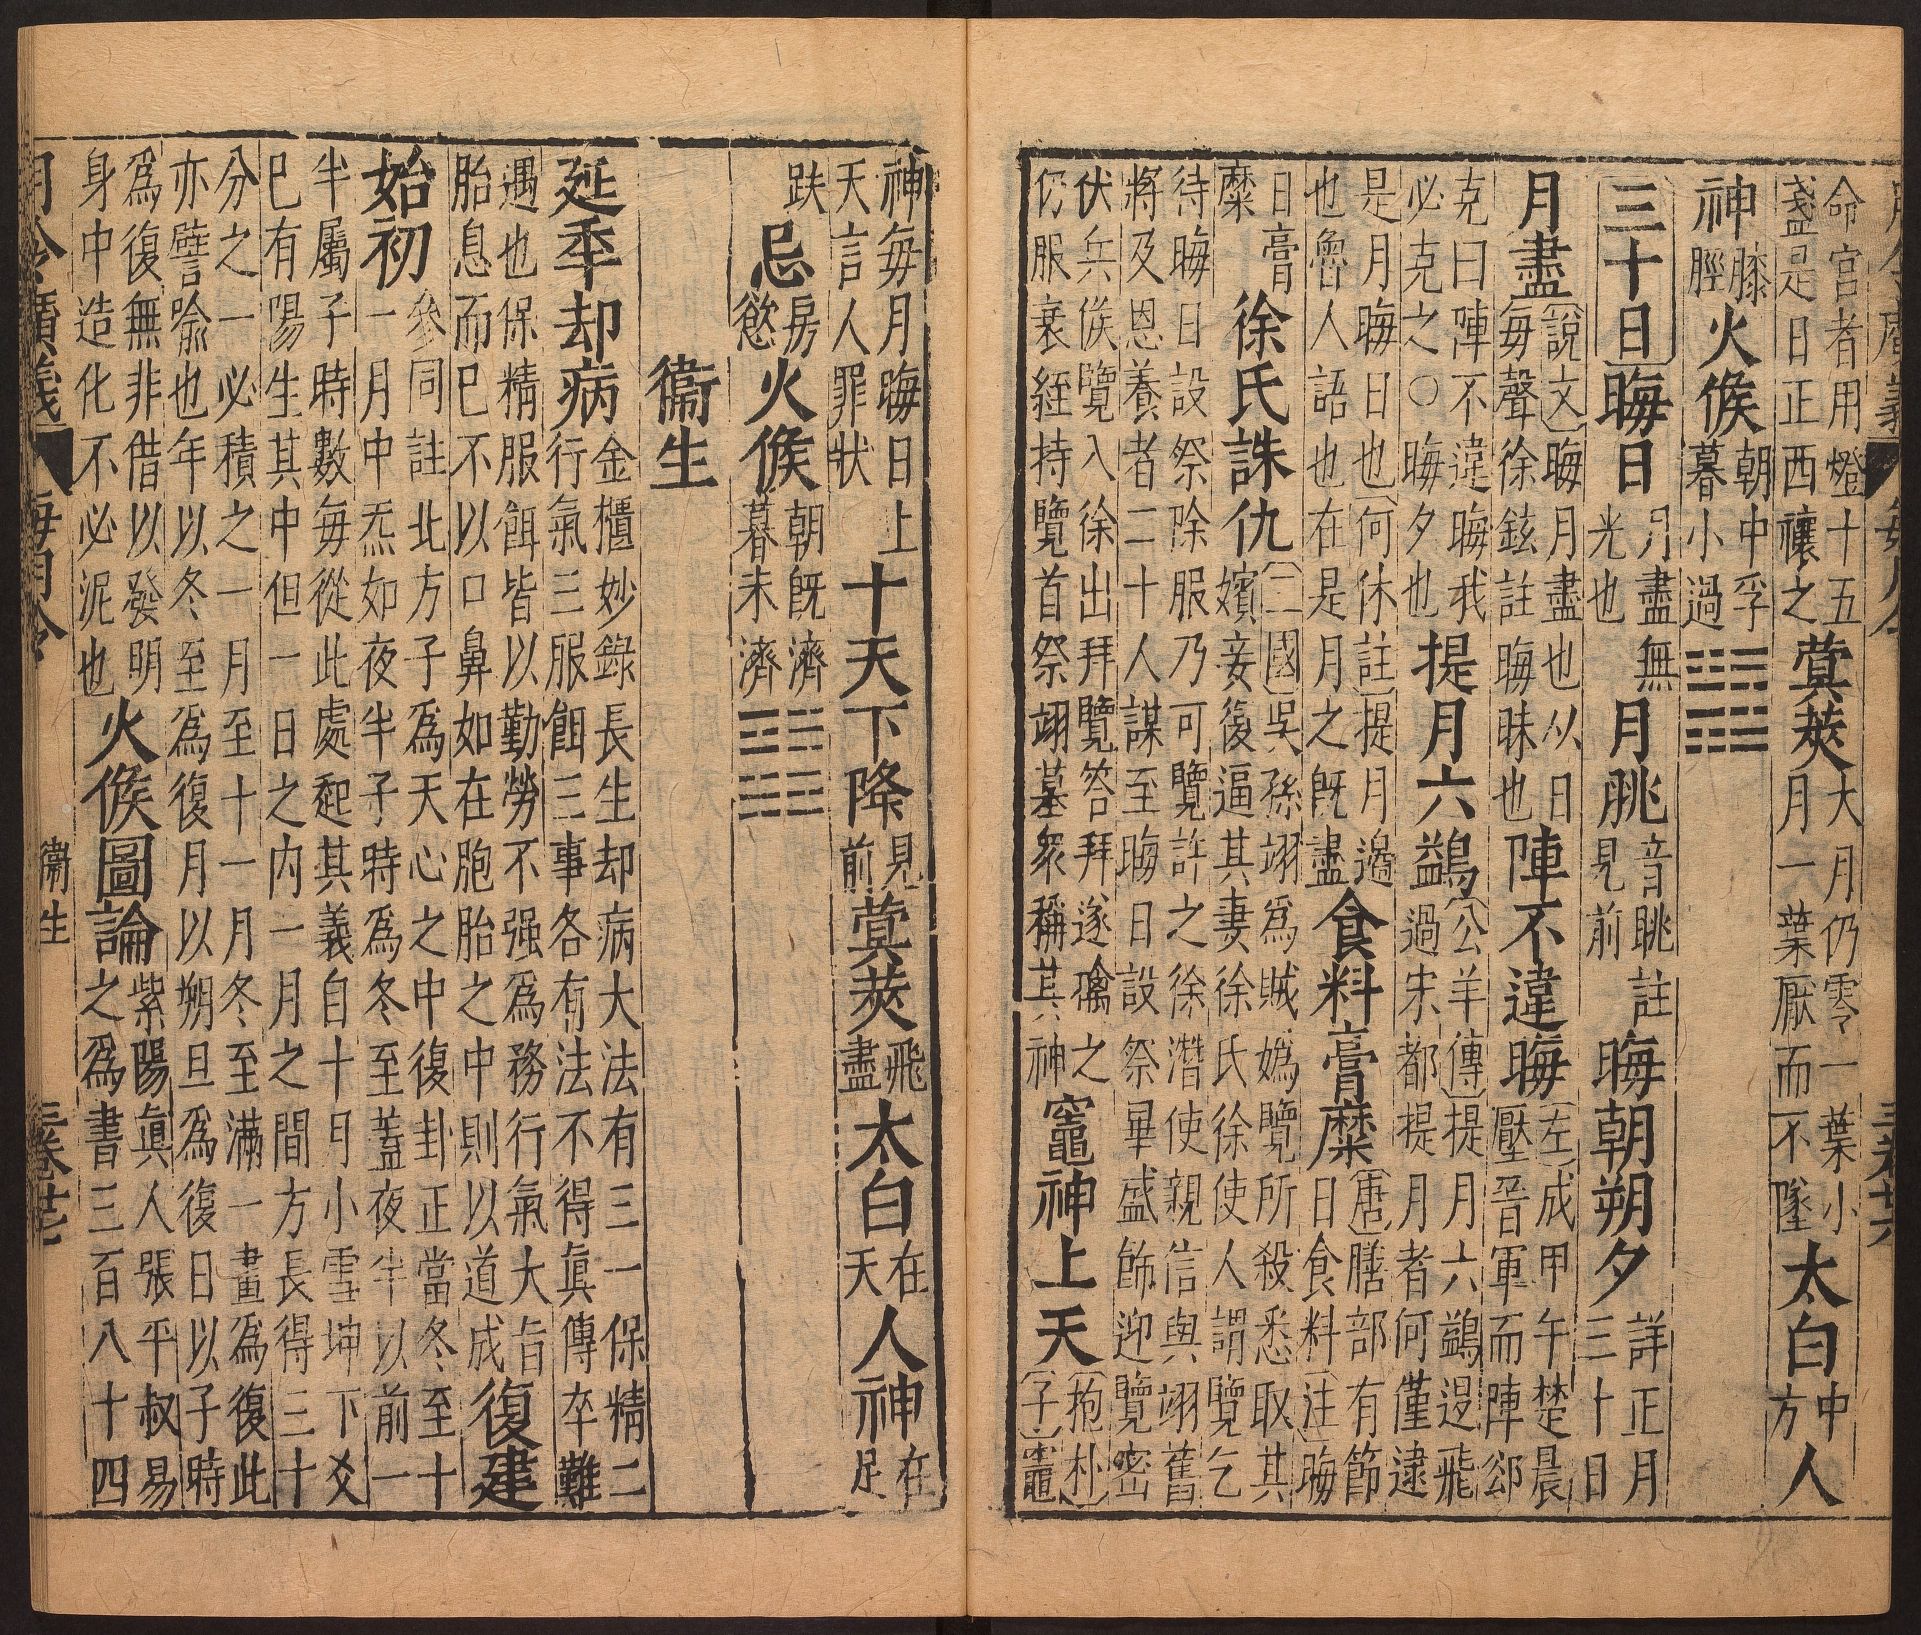 命宮者用燈十五
盞是日正西禳之
蓂莢
大月仍零一葉小
月一葉厭而不墜
太白
中
方
人
神
膝
脛
火候
朝中孚
暮小過
三十日
晦日
月盡無
光也
月朓
音眺註
見前
晦朝朔夕
詳正月
三十日
月盡
說文晦月盡也以日
每聲徐鉉註晦昧也
陣不違晦
左成甲午楚晨
壓晉軍而陣郤
克曰陣不違晦我
必克之○晦夕也
提月六鷁
公羊傳提月六鷁退飛
過宋都提月者何僅逮
是月晦日也何休註提月邊
也魯人語也在是月之既盡
食料膏糜
唐膳部有節
日食料注晦
日膏
糜
徐氏誅仇
三國吳孫翊為賊媯覽所殺悉取其
嬪妾復逼其妻徐氏徐使人謂覽乞
待晦日設祭除服乃可覽許之徐潛使親信與翊舊
將及恩養者二十人謀至晦日設祭畢盛飾迎覽覽密
伏兵候覽入徐出拜覽答拜遂擒之
仍服衰絰持覽首祭翊墓眾稱其神
竈神上天
抱朴
子竈
神每月晦日上
天言人罪狀
十天下降
見
前
蓂莢
飛
盡
太白
在
天
人神
在
足
趺
忌
房
慾
火候
朝既濟
暮未濟
衞生
延年却病
金櫃妙錄長生却病大法有三一保精二
行氣三服餌三事各有法不得眞傳卒難
遇也保精服餌皆以勤勞不强爲務行氣大旨
胎息而巳不以口鼻如在胞胎之中則以道成
復建
始初
參同註北方子爲天心之中復卦正當冬至十
一月中炁如夜半子時爲冬至蓋夜半以前一
半屬子時數每從此處起其義自十月小雪坤下爻
巳有陽生其中但一日之內一月之間方長得三十
分之一必積之一月至十一月冬至滿一畫爲復此
亦譬喻也年以冬至爲復月以朔旦爲復日以子時
爲復無非借以發明
身中造化不必泥也
火候圖論
紫陽眞人張平叔易
之爲書三百八十四
月令廣義
每月令
衞生
三卷